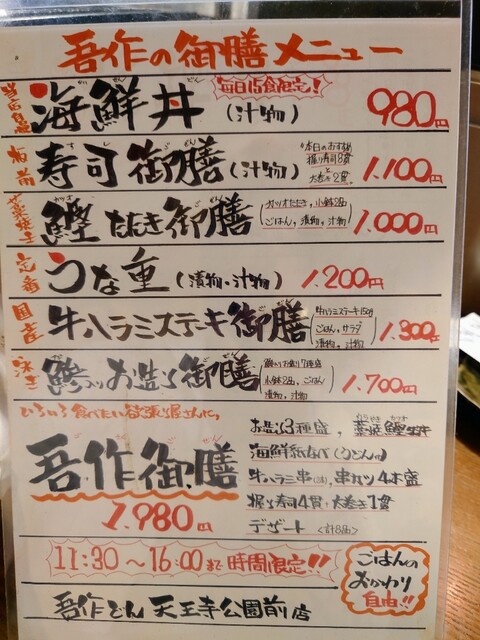 吾作の御膳メニュー
海鮮丼 (汁物) 毎日15食限定! 980円
板前 寿司御膳 (汁物) 本日のおすすめ 握り寿司8貫と 太巻き2貫 1,100円
藁焼き 鰹たたき御膳 カツオたたき、小鉢2品 ごはん、漬物、汁物 1,000円
定番 うな重 (漬物・汁物) 1,200円
国産 牛ハラミステーキ御膳 牛ハラミステーキ150g ごはん、サラダ 漬物、汁物 1,300円
活き 鯵入りお造り御膳 鯵入りお造り7種盛 小鉢2品、ごはん 漬物、汁物 1,700円
いろいろ食べたい欲張り屋さんに。
吾作御膳
1,980円
お造り3種盛、藁焼鰹
海鮮紙なべ(うどん入り)
牛ハラミ串(2本)、串カツ4本盛
握り寿司4貫・太巻き1貫
デザート <計8品>
11:30〜16:00まで時間限定!!
ごはんの
おかわり
自由!!
吾作どん 天王寺公園前店